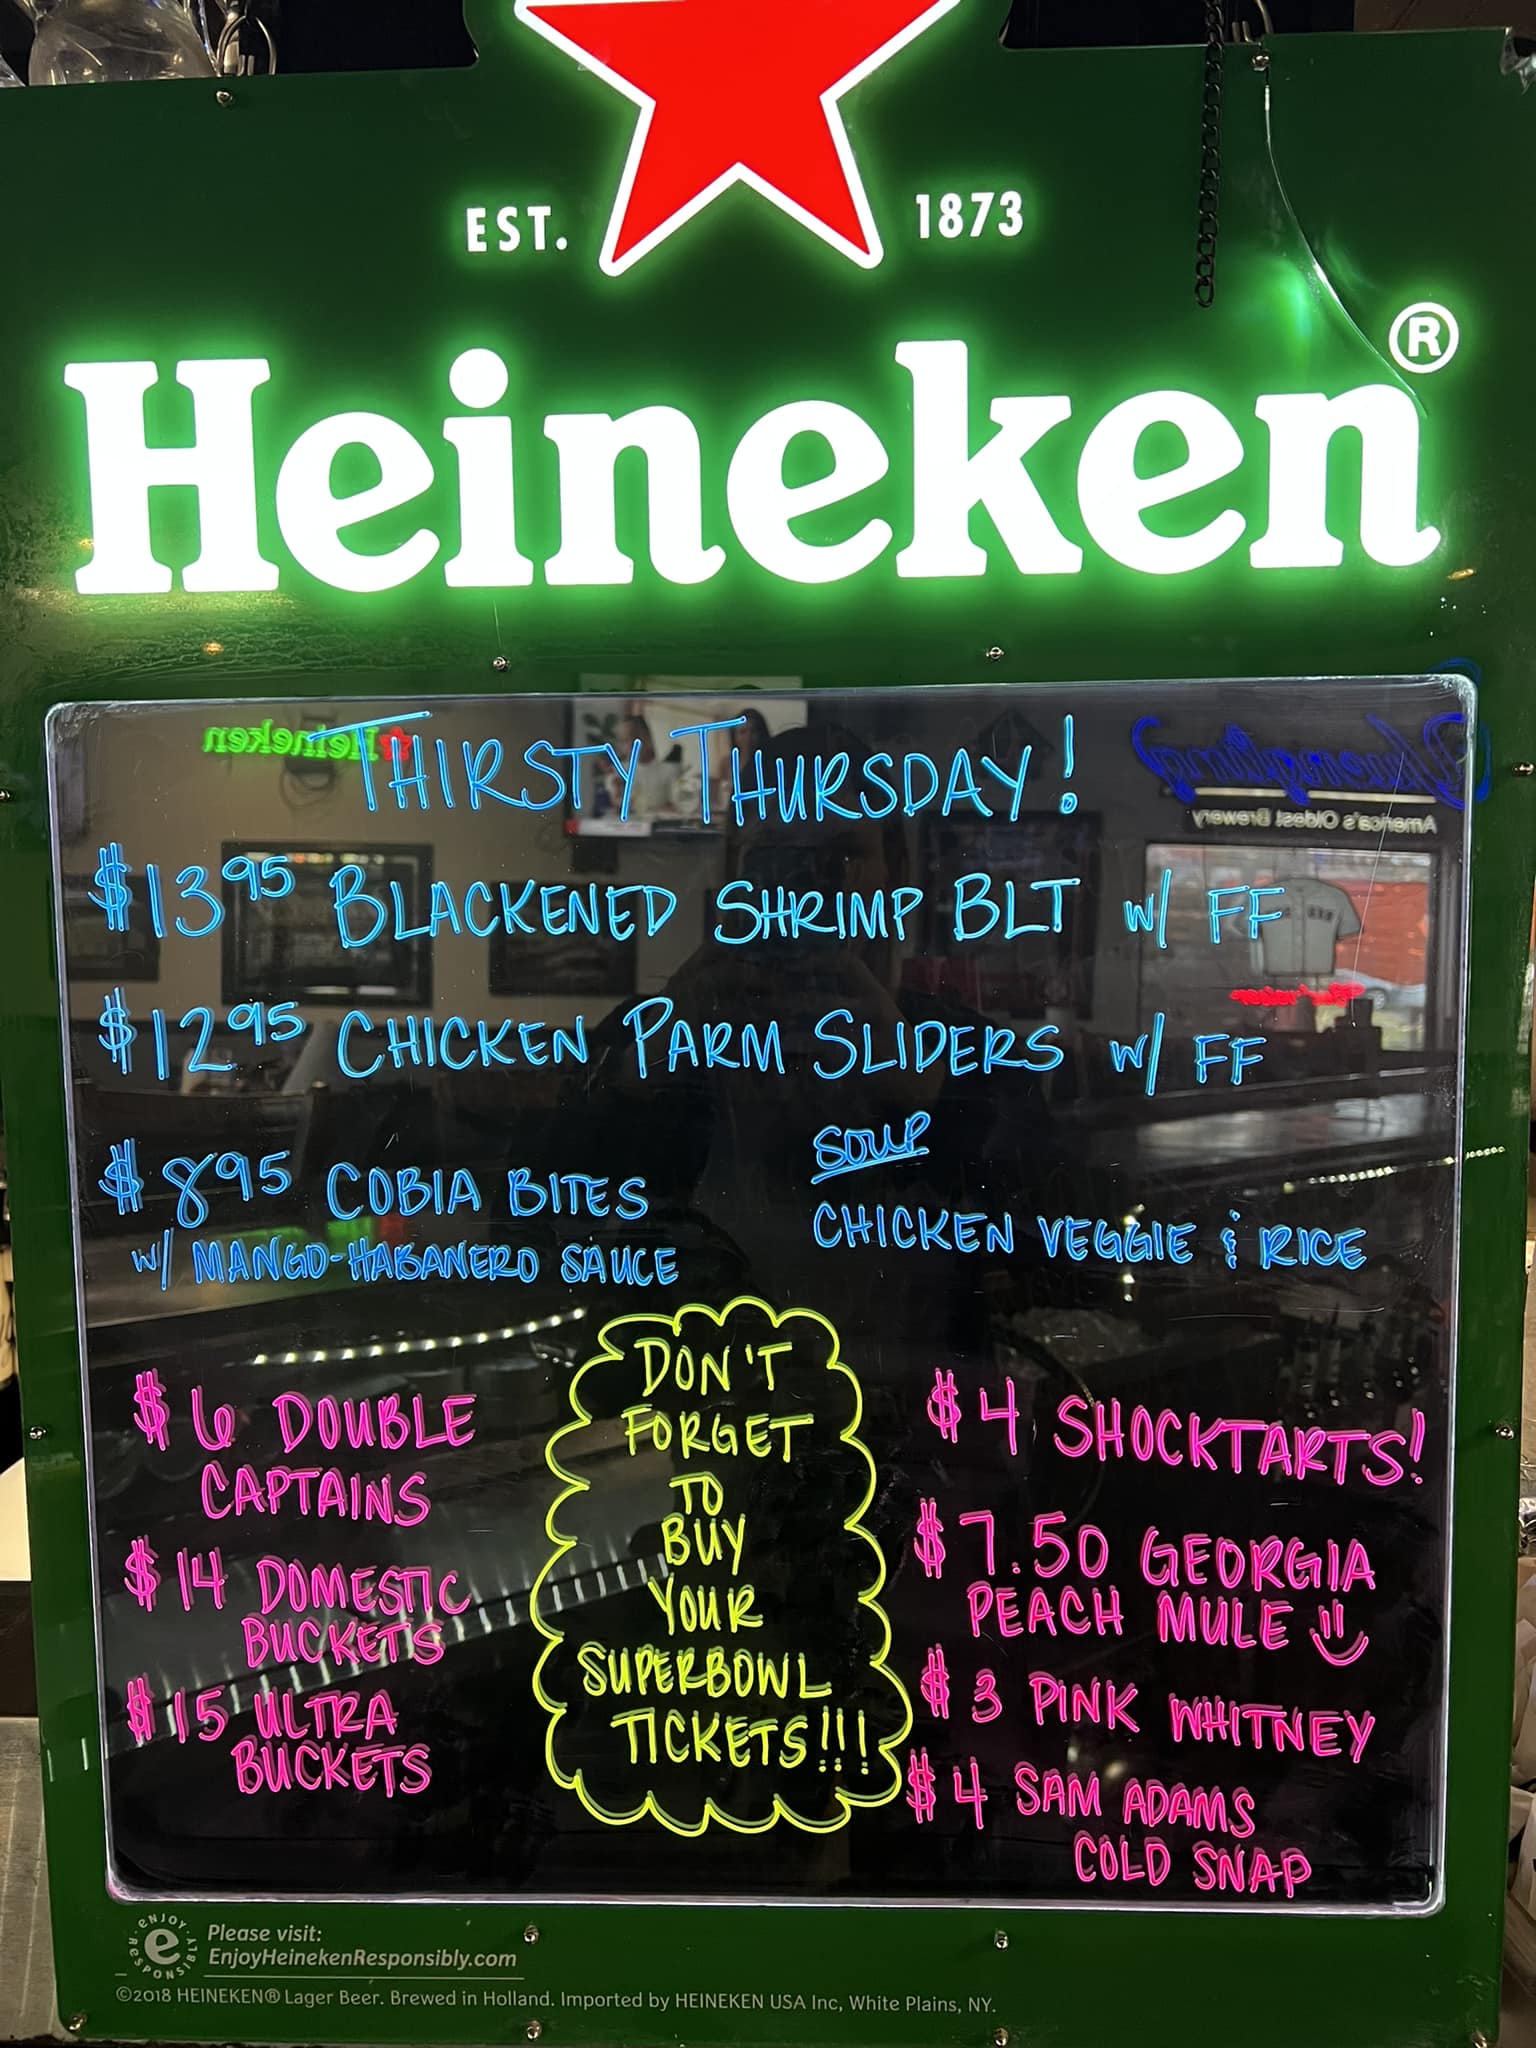 EST. 1873
Heineken®
THIRSTY THURSDAY!
$13.95 BLACKENED SHRIMP BLT W/ FF
$12.95 CHICKEN PARM SLIDERS W/ FF
$8.95 COBIA BITES
W/ MANGO-HABANERO SAUCE
SOUP
CHICKEN VEGGIE & RICE
$6 DOUBLE
CAPTAINS
$14 DOMESTIC
BUCKETS
$15 ULTRA
BUCKETS
DON'T
FORGET
TO
BUY
YOUR
SUPERBOWL
TICKETS!!!
$4 SHOCKTARTS!
$7.50 GEORGIA
PEACH MULE
$3 PINK WHITNEY
$4 SAM ADAMS
COLD SNAP
Heineken
Yuengling
America's Oldest Brewery
ENJOY RESPONSIBLY
e
Please visit:
EnjoyHeinekenResponsibly.com
©2018 HEINEKEN® Lager Beer. Brewed in Holland. Imported by HEINEKEN USA Inc, White Plains, NY.